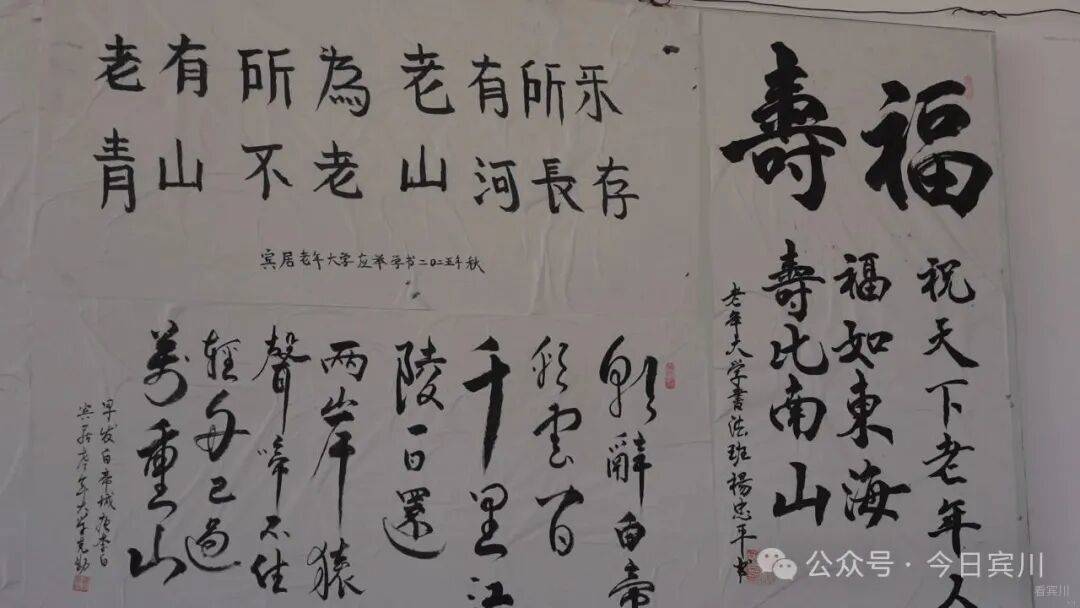 老有所為老有所乐
青山不老山河長存
宾居老年大学 二〇二五年秋
福壽
祝天下老年人
福如東海
壽比南山
老年大学書法班楊忠平书
朝辭白帝
彩雲间
千里江
陵一日還
两岸猿
聲啼不住
輕舟已過
萬重山
早发白帝城 唐李白
宾居老年大学
公众号 · 今日宾川
看宾川